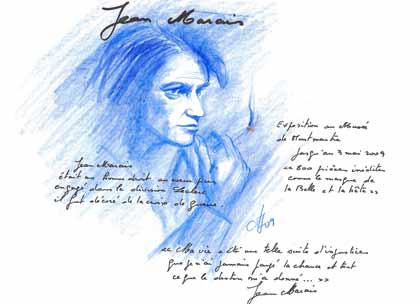 Jean Marais
Exposition au Musée
de Montmartre
Jusqu'au 3 mai 2009
"800 pièces inédites
comme le masque de
la Belle et la bête"
Jean Marais
était un homme droit au cœur pur
engagé dans la division Leclerc
il fut décoré de la croix de guerre.
09
"Ma vie a été une telle suite d'injustices
que je n'ai jamais forgé la chance et tout
ce que le destin m'a donné..."
Jean Marais